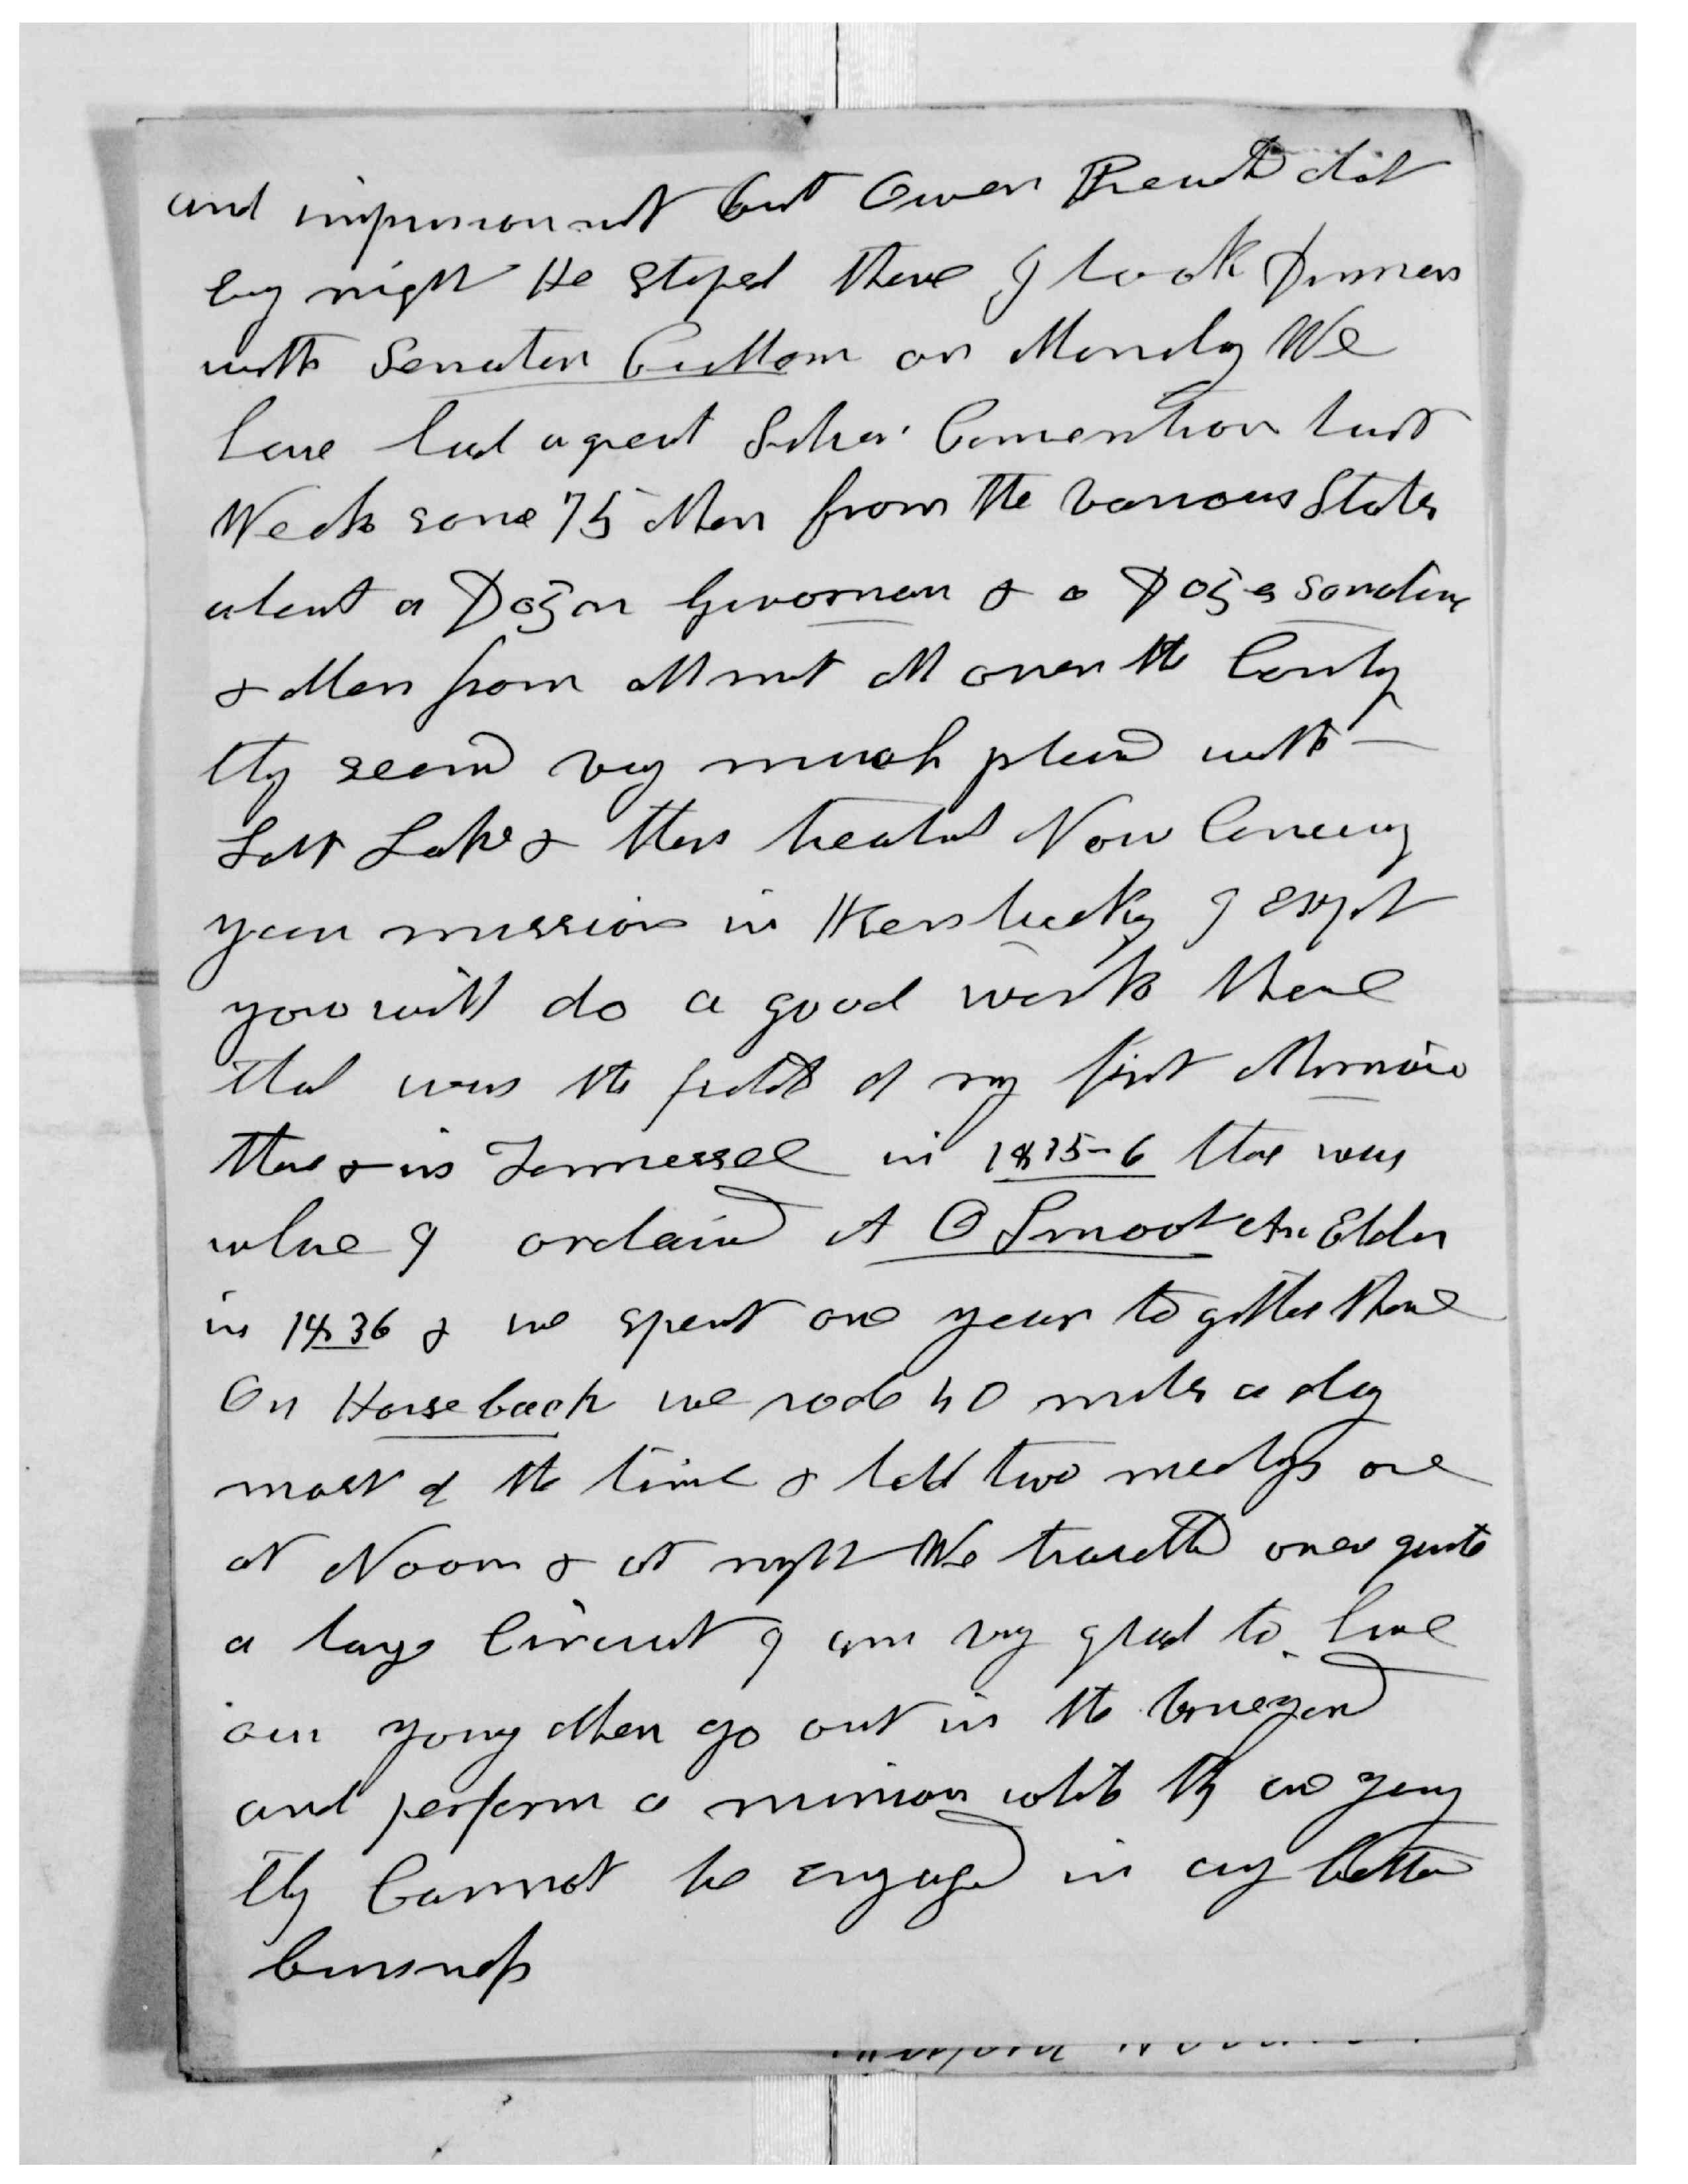 and imprisonment but Owen Preach dit
by night He stoped there I took Dinner
with Senator Cullom on Monday We
have had a great Silver Convention last
Week some 75 Men from the various States
about a Dozen Govornors & a Dozen Senators
& Men from Almost All over the County
thy seemd vey much pleasd with
Salt Lake & thir treatmt Now Concerng
your mission in Kenstucky I Expt
you will do a good work there
that was the field of my first Mission
there & in Tennessee in 1835-6 thar was
where I ordaind A O Smoot An Elder
in 1836 & we spent one year togather there
On Horse back we rode 40 miles a day
most of the time & held two meetings one
at Noon & at night We travelled over quite
a large Circuit I am vey glad to have
our yong Men go out in the Vineyard
and perform a mission while thy are yong
thy Cannot be engaged in any better
buisness